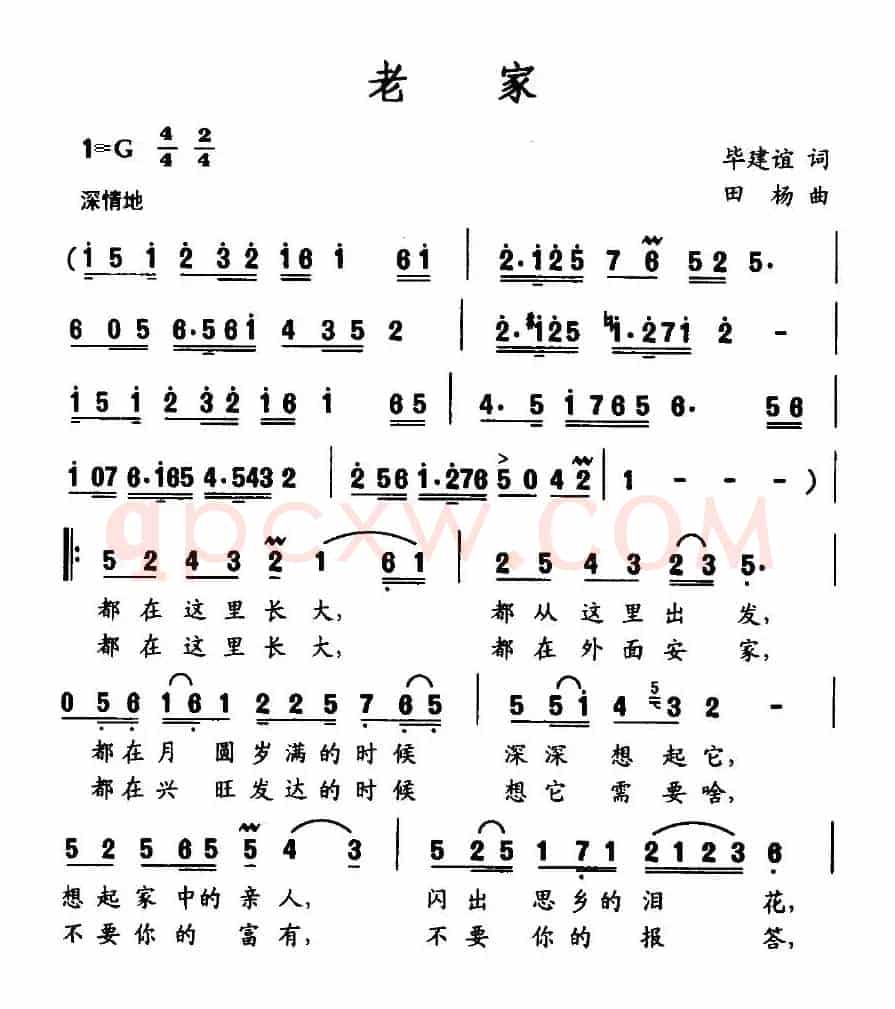 老 家
1=G 4/4 2/4
毕建谊 词
深情地
田 杨 曲
(i 5 i 2̇ 3̇2̇ i6 i 6i | 2̇·i2̇5 7 6 52 5· |
6 05 6·56i 4 35 2 | 2̇·#i2̇5 ♮i·2̇7i 2̇ - |
i 5 i 2̇ 3̇2̇ i6 i 65 | 4· 5 i765 6· 56 |
i 07 6·i65 4·543 2 | 2̇ 56 i·2̇76 5 0 4 2 | 1 - - - )
‖: 5 2 4 3 2 1 6̣1 | 2 5 4 3 23 5̣· |
都在这里长大, 都从这里出发,
都在这里长大, 都在外面安家,
0 5̣6̣ 16̣1 2 2 5 7̣ 6̣5̣ | 5 5i 4 5 3 2 - |
都在月圆岁满的时候 深深想起它,
都在兴旺发达的时候 想它需要啥,
5 2 5 65 5 4 3 | 5 25 1 7̣1 2123 6̣ |
想起家中的亲人, 闪出思乡的泪花,
不要你的富有, 不要你的报答,
qpcxw.COM